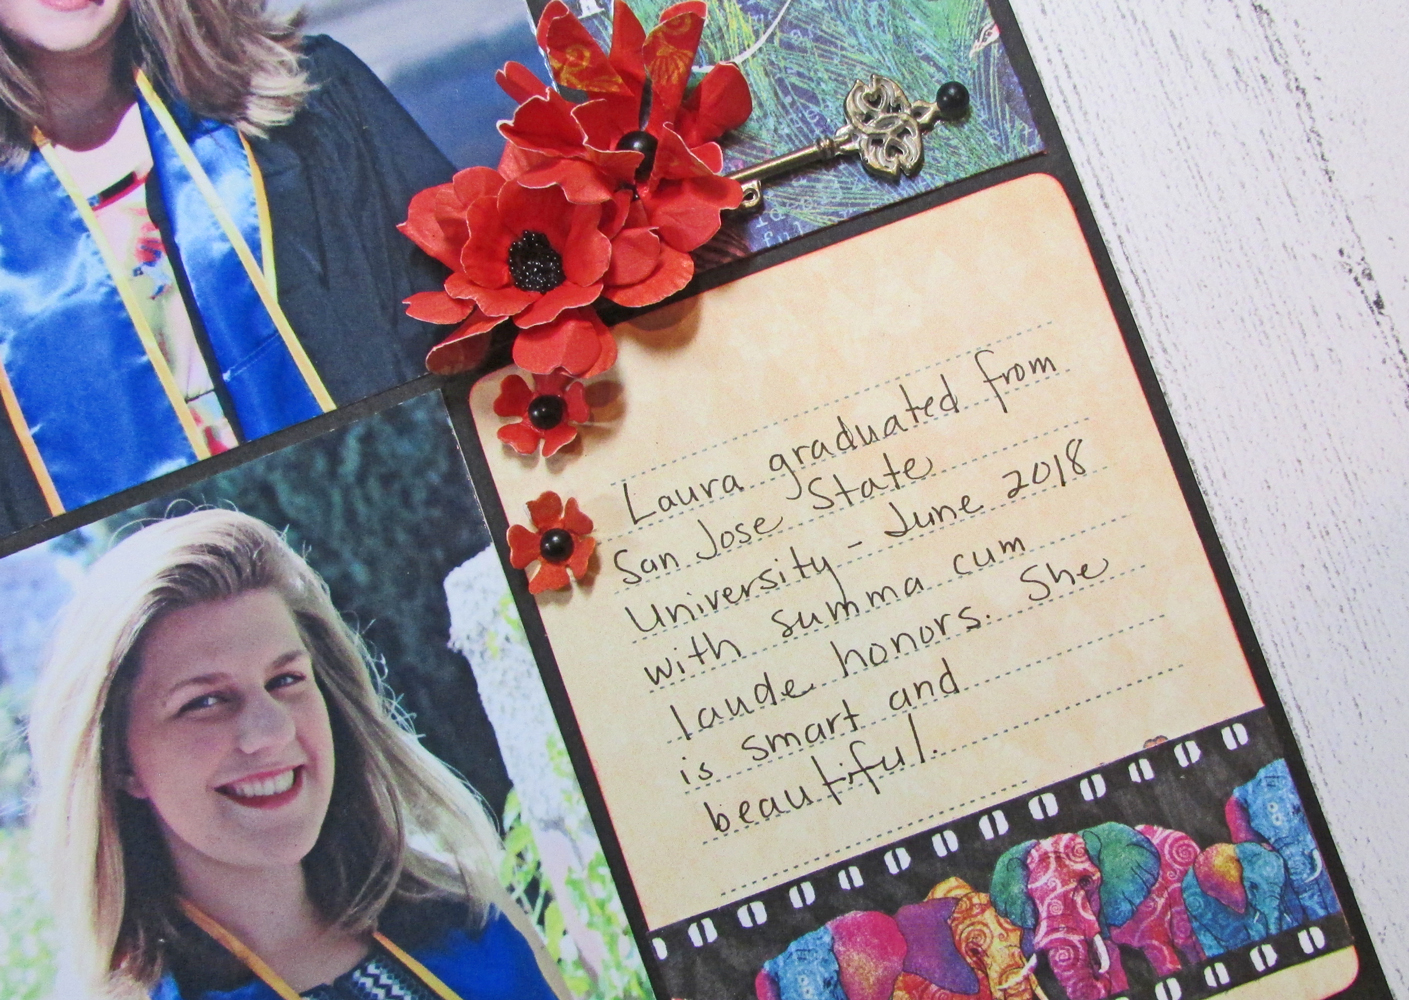 Laura graduated from
San Jose State
University - June 2018
with summa cum
laude honors. She
is smart and
beautiful.